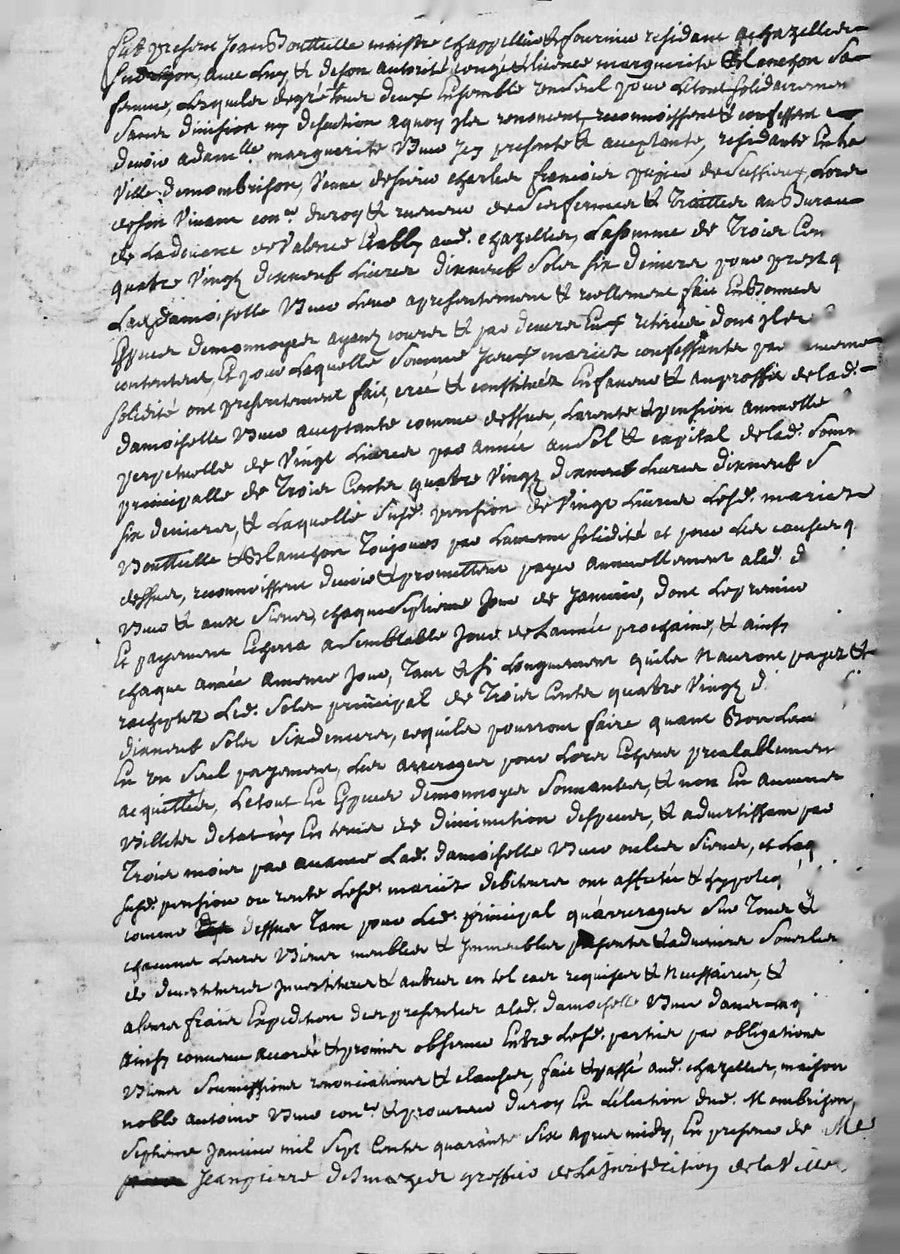 fut present Jean Bouttelle maistre chappellier & fournier residant a chazelles
sur Lyon, avec luy & de son autorité congé & licence marguerite Blanchon sa
femme, Lesquels de gré tous deux Ensemble un seul pour Le tout solidairement
sans division ny discution a quoy ils renoncent, reconnoissent & confessent
devoir a dam.lle marguerite presente & acceptante, residante En la
ville de mombrison, veuve de sieur charles françois de Lors
de son vivant con.er du roy & receveur & Traittes au Bureau
de La doüanne de Valence Etably aud. chazelles, La somme de Trois Cent
quatre Vingt dixneuf Livres dixneuf sols six deniers pour prest q
Lad. damoiselle Leur a presentement & reellement fait En Bonnes
Especes de monnoyes ayant cours & par devers Eux retirées dont ils se
contentent, Et pour Laquelle somme Iceux mariez confessants par mesme
solidité ont presentement fait, créé & constitué En faveur & au proffit de lad.
damoiselle acceptante comme dessus, La rente & pension annuelle
perpetuelle de Vingt Livres par année au sol & capital de lad. somme
principalle de Trois Cents quatre Vingt dixneuf Livres dixneuf s
six deniers, & Laquelle susd. pension de Vingt Livres Lesd. mariez
Bouttelle & Blanchon Toujours par La mesme solidité et pour Les causes q
dessus, reconnoissent devoir & promettent payer annuellement a lad. d
& aux siens, chaque septieme Jour de Janvier, dont Le premier
Et payement Echerra a semblable Jour de L'année prochaine, & ainsy
chaque année a mesme Jour, Tant & si Longuement qu'ils n'auront payez &
racheptez Led. sols principal de Trois Cents quatre Vingt d
dixneuf sols six deniers, ce qu'ils pourront faire quant Bon Leur
En un seul payement, Les arrerages pour Lors Echeus prealablement
acquittés, Le tout En Especes de monnoyes sonnantes, & non En aucuns
Billets d'etat ny En termes de diminution d'especes, & advertissant par
Trois mois par avance Lad. damoiselle ou les siens, et Laq
susd. pension ou rente Lesd. mariez debiteurs ont affecté & hypoteq
comme dessus Tant pour Led. principal qu'arrerages sur Tous &
chacuns Leurs Biens meubles & Immeubles presents & advenirs sous Les
de devestitures Investitures & autres en tel cas requises & necessaires, &
a leurs frais Expedition des presentes a lad. damoiselle
ainsy convenu accordé & promis observer Entre Lesd. parties par obligations
Biens soumissions renonciations & clauses, fait & passé aud. chazelles, maison
noble antoine con.er & procureur du roy En L'élection dud. Mombrison,
septieme Janvier mil sept Cents quarante six apres midy, En presence de Me
Jeanpierre greffier de La Jurisdiction de la Ville